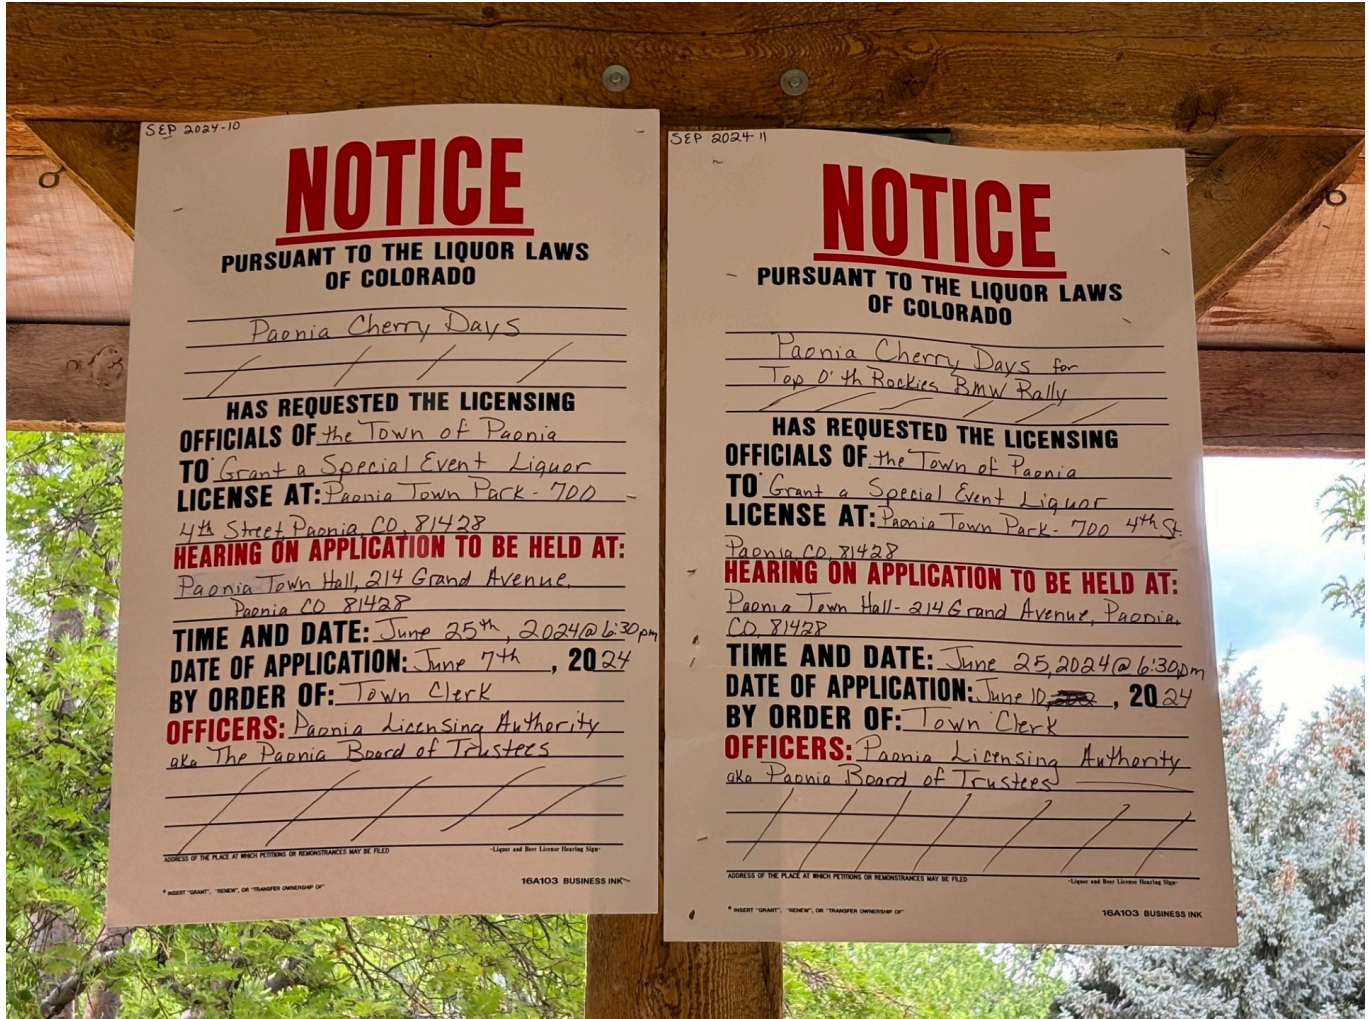 SEP 2024-10
NOTICE
PURSUANT TO THE LIQUOR LAWS
OF COLORADO
Paonia Cherry Days
HAS REQUESTED THE LICENSING
OFFICIALS OF the Town of Paonia
TO* Grant a Special Event Liquor
LICENSE AT: Paonia Town Park - 700
4th Street, Paonia, CO, 81428
HEARING ON APPLICATION TO BE HELD AT:
Paonia Town Hall, 214 Grand Avenue,
Paonia CO 81428
TIME AND DATE: June 25th, 2024 @ 6:30pm
DATE OF APPLICATION: June 7th, 2024
BY ORDER OF: Town Clerk
OFFICERS: Paonia Licensing Authority
aka The Paonia Board of Trustees
ADDRESS OF THE PLACE AT WHICH PETITIONS OR REMONSTRANCES MAY BE FILED
-Liquor and Beer License Hearing Sign-
* INSERT "GRANT", "RENEW", OR "TRANSFER OWNERSHIP OF"
16A103 BUSINESS INK
SEP 2024-11
NOTICE
PURSUANT TO THE LIQUOR LAWS
OF COLORADO
Paonia Cherry Days for
Top O' th Rockies BMW Rally
HAS REQUESTED THE LICENSING
OFFICIALS OF the Town of Paonia
TO* Grant a Special Event Liquor
LICENSE AT: Paonia Town Park - 700 4th St.
Paonia, CO, 81428
HEARING ON APPLICATION TO BE HELD AT:
Paonia Town Hall - 214 Grand Avenue, Paonia,
CO, 81428
TIME AND DATE: June 25, 2024 @ 6:30pm
DATE OF APPLICATION: June 10, 2024
BY ORDER OF: Town Clerk
OFFICERS: Paonia Licensing Authority
aka Paonia Board of Trustees
ADDRESS OF THE PLACE AT WHICH PETITIONS OR REMONSTRANCES MAY BE FILED
-Liquor and Beer License Hearing Sign-
* INSERT "GRANT", "RENEW", OR "TRANSFER OWNERSHIP OF"
16A103 BUSINESS INK